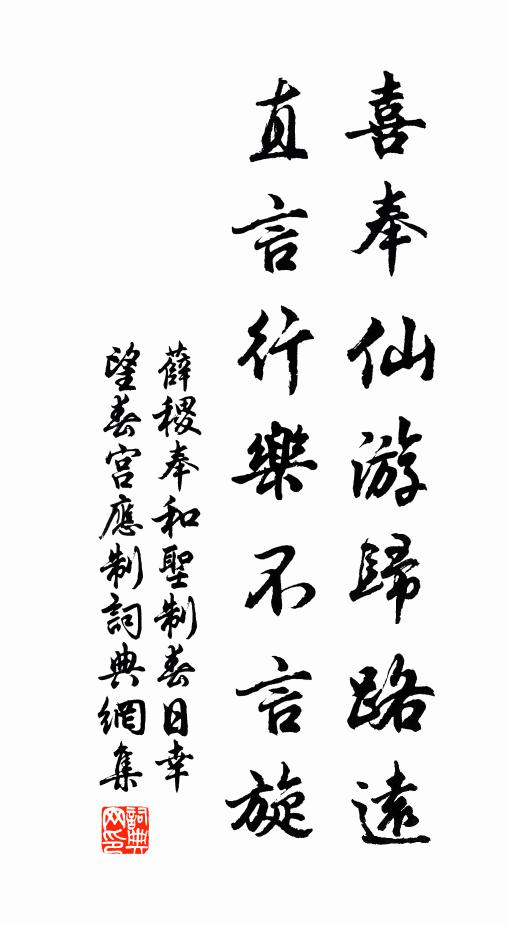 喜奉仙游歸路遠
直言行樂不言旋
薛稷奉和聖制春日幸
望春宮應制詞典網集
詞典網印